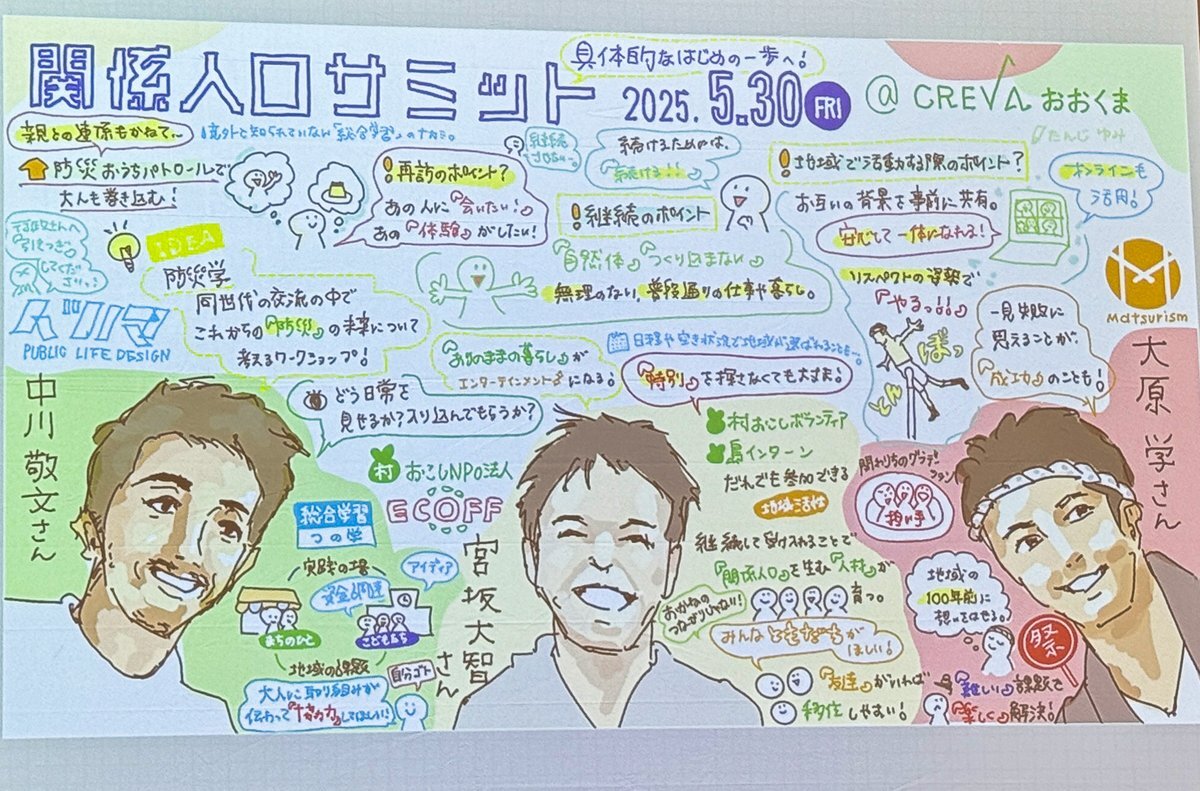 関係人口サミット
具体的なはじめの一歩へ!
2025. 5.30 FRI
@ CREVA おおくま
たんじ ゆみ
親との連係もかねて…
意外と知られていない「総合学習」のナカミ。
防災おうちパトロールで
大人も巻き込む!
IDEA
防災学
同世代の交流の中で
これからの『防災』の未来について
考えるワークショップ!
PUBLIC LIFE DESIGN
中川敬文さん
!再訪のポイント?
あの人に『会いたい!』
あの『体験』がしたい!
継続
させない…
続けるためのは、
『続ける!!』
!継続のポイント
『自然体』つくり込まない
無理のない、普段通りの仕事や暮らし。
『ありのままの暮らし』が
エンターテインメントになる。
日程や空き状況で地域が選ばれることも…。
『特別』を探さなくても大丈夫!
どう日常を
見せるか?入り込んでもらうか?
村おこしNPO法人
ECOFF
宮坂大智さん
総合学習
つの学
実践の場
アイディア
資金調達
まちのひと
こどもたち
地域の課題
自分ゴト
大人に取り組みが
伝わって
してほしい!
村おこしボランティア
島インターン
だれでも参加できる
地域活性
継続して受け入れることで
『関係人口』を生む『人材』が
育つ。
おかねの
つながりじゃない!
みんなともだちが
ほしい!
『友達』がいれば
移住しやすい!
!地域で活動する際のポイント?
お互いの背景を事前に共有。
オンラインも
活用!
安心して一体になれる!
リスペクトの姿勢で
『やるっ!!』
一見失敗に
思えることが、
『成功』のことも!
matsurism
大原学さん
関わりちのグラデーション
担い手
地域の
100年前に
想いをはせる。
祭
『難しい』課題で
『楽しく』解決!